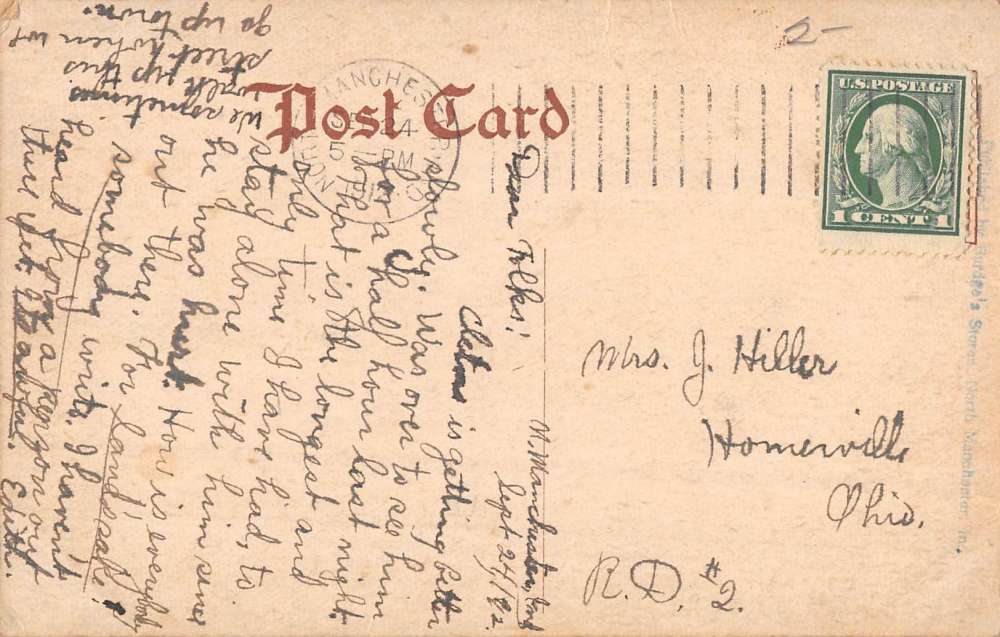 Post Card
MANCHESTER
4
PM
U.S. POSTAGE
1 CENT 1
2-
N. Manchester, Ind
Sept 24/12.
Dear Folks!
is getting better
slowly. Was over to see him
for a half hour last night.
That is the longest and
only time I have had, to
stay alone with him since
he was hurt. How is everybody
out there. For Land's sake!
somebody write. I havent
heard from a person out
there yet. It is awful.
Edith.
We sometimes
walk up this
street when we
go up town.
Mrs. J. Hiller
Homerville
Ohio.
R.D. #2.
Burdge's Stores, North Manchester, In